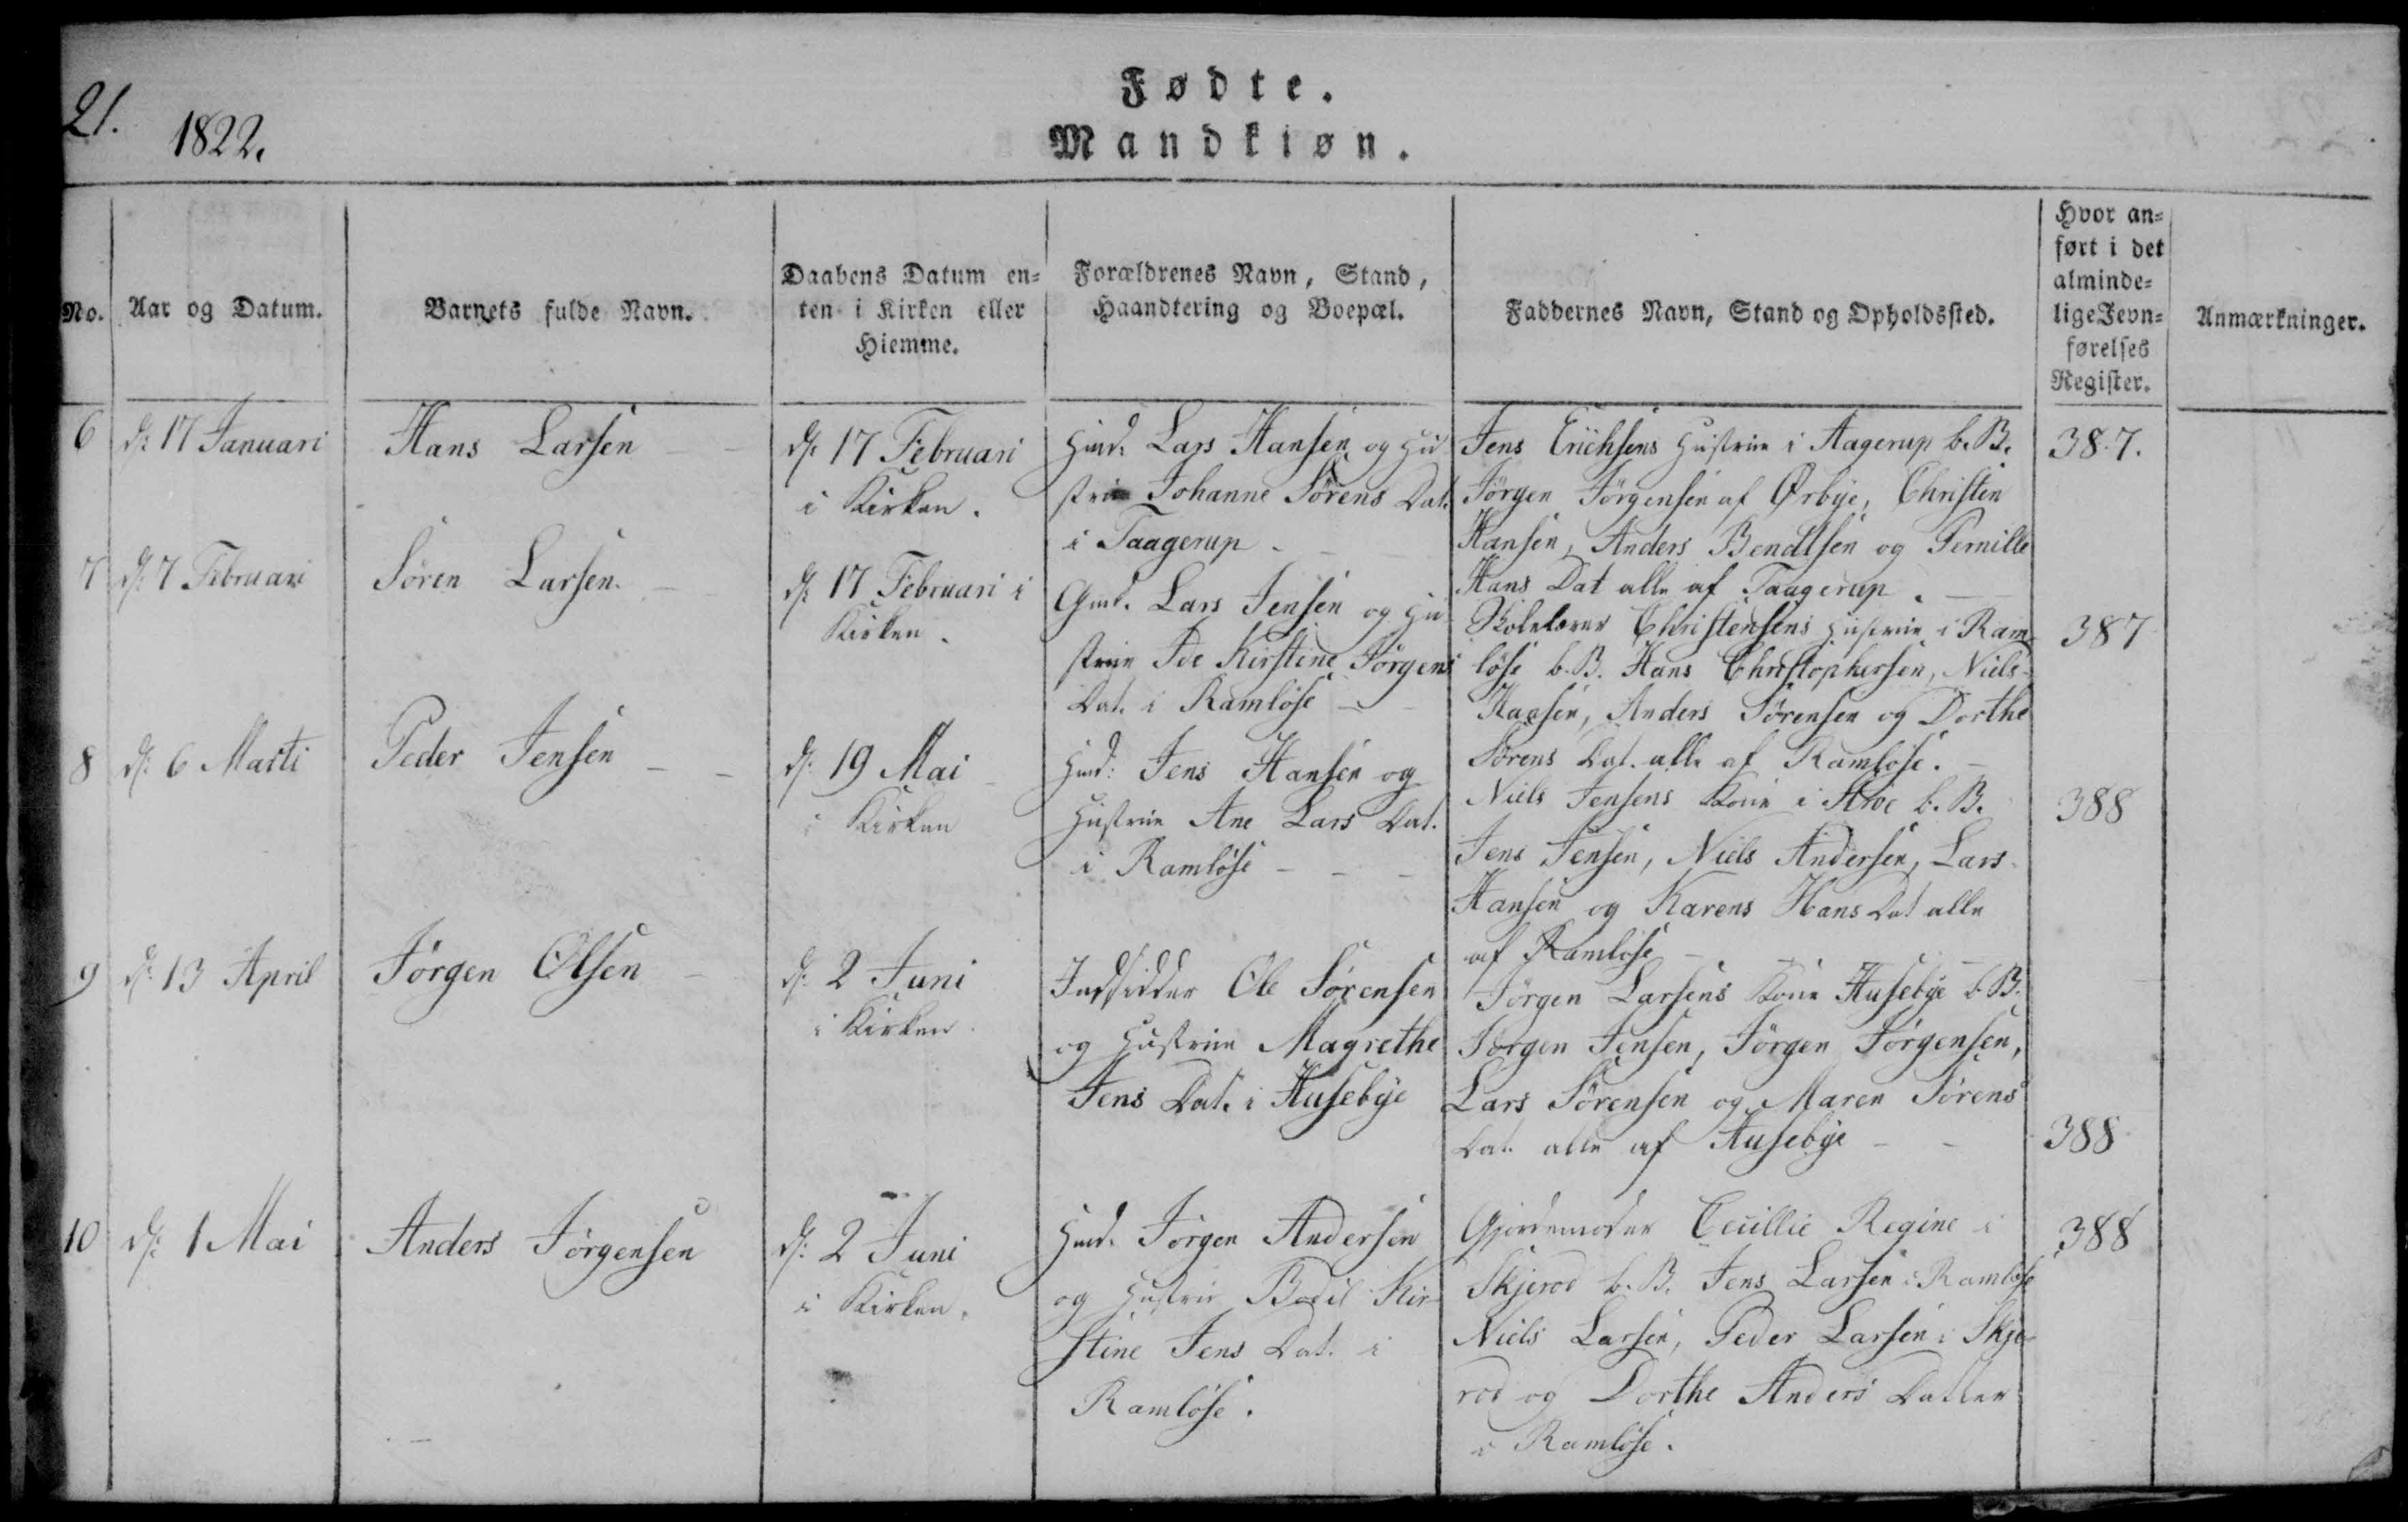 21.
1822.
Fødte.
Mandkiøn.
No.
Aar og Datum.
Barnets fulde Navn.
Daabens Datum en=
ten i Kirken eller
Hiemme.
Forældrenes Navn, Stand,
Haandtering og Boepæl.
Faddernes Navn, Stand og Opholdssted.
Hvor an=
ført i det
alminde=
lige Jevn=
førelses
Register.
Anmærkninger.
6
d: 17 Januari
Hans Larsen
d: 17 Februari
i Kirken.
Huusm. Lars Hansen og Hu
strue Johanne Sørens Dat.
i Taagerup
Jens Erichsens Hustrue i Aagerup b. B.
Jörgen Jörgensen af Ørbye, Christen
Hansen, Anders Bendtsen og Pernille
Hans Dat alle af Taagerup.
387.
7
d: 7 Februari
Sören Larsen
d: 17 Februari i
Kirken.
Gmd. Lars Jensen og Hu
strue Ide Kirstine Jörgens
Dat. i Ramløse
Skolelærer Christensens Hustrue i Ram
løse b. B. Hans Christophersen, Niels
Hansen, Anders Sörensen og Dorthe
Sörens Dat. alle af Ramløse.
387
8
d: 6 Marti
Peder Jensen
d: 19 Mai
i Kirken
Hmd: Jens Hansen og
Hustrue Ane Lars Dat.
i Ramløse
Niels Jensens Kone i b. B.
Jens Jensen, Niels Andersen, Lars
Hansen og Karens Hans Dat alle
af Ramløse
388
9
d: 13 April
Jörgen Olsen
d: 2 Juni
i Kirken
Indsidder Ole Sörensen
og Hustrue Magrethe
Jens Dat. i Husebye
Jörgen Larsens Kone Husebye b. B.
Jörgen Jensen, Jörgen Jörgensen,
Lars Sörensen og Maren Sörens
Dat. alle af Husebye
388
10
d: 1 Mai
Anders Jörgensen
d: 2 Juni
i Kirken.
Hmd. Jörgen Andersen
og Hustrue Bodil Kir
stine Jens Dat. i
Ramløse.
Gjordemoder Cecillie Regine i
Skjerod b. B. Jens Larsen i Ramløse
Niels Larsen, Peder Larsen i Skje
rod og Dorthe Anders Datter
i Ramløse.
388